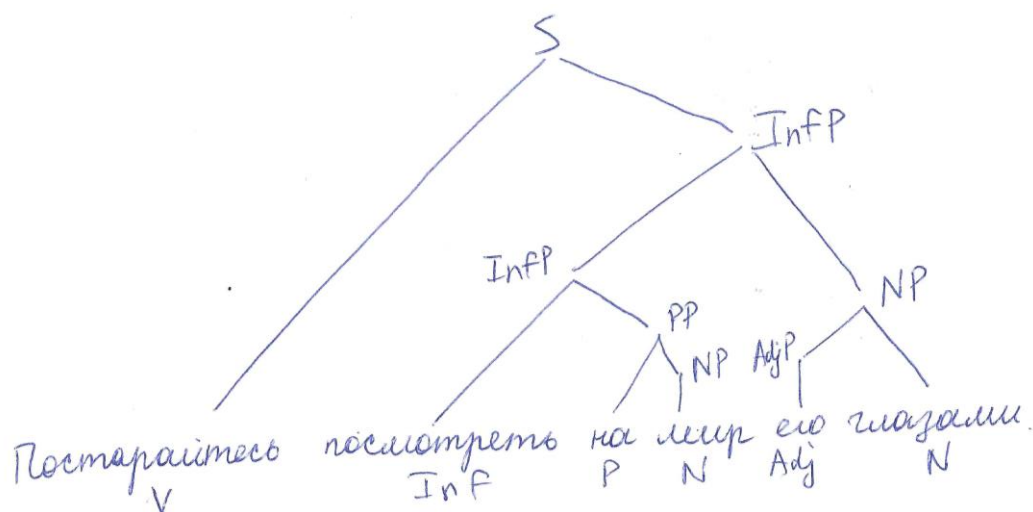 S
InfP
InfP
NP
PP
NP
AdjP
Постарайтесь посмотреть на мир его глазами.
V Inf P N Adj N